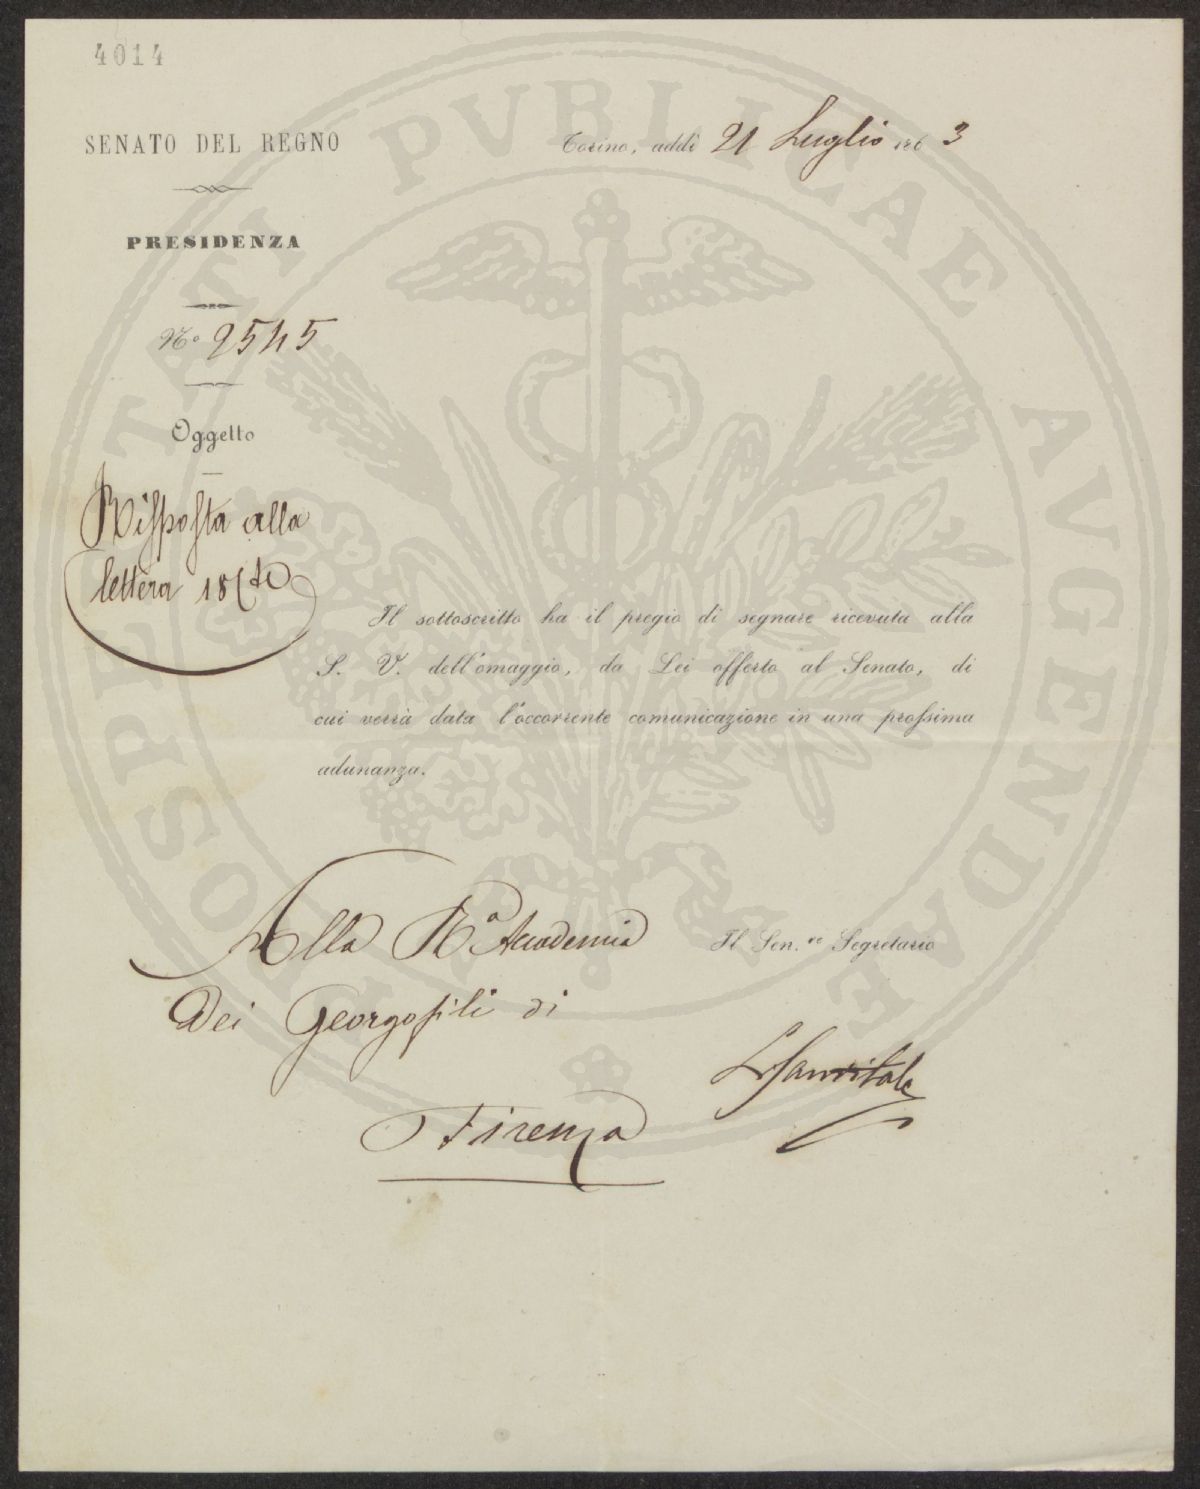 4014
SENATO DEL REGNO
Torino, addì 21 Luglio 186 3
PRESIDENZA
N.o 2545
Oggetto
Risposta alla
lettera 18
Il sottoscritto ha il pregio di segnare ricevuta alla
S. V. dell'omaggio, da Lei offerto al Senato, di
cui verrà data l'occorrente comunicazione in una prossima
adunanza.
Alla R.a Accademia
Dei Georgofili di
Firenza
Il Sen.re Segretario
LSanvitale
PROSPERITATI PVBLICAE AVGENDAE